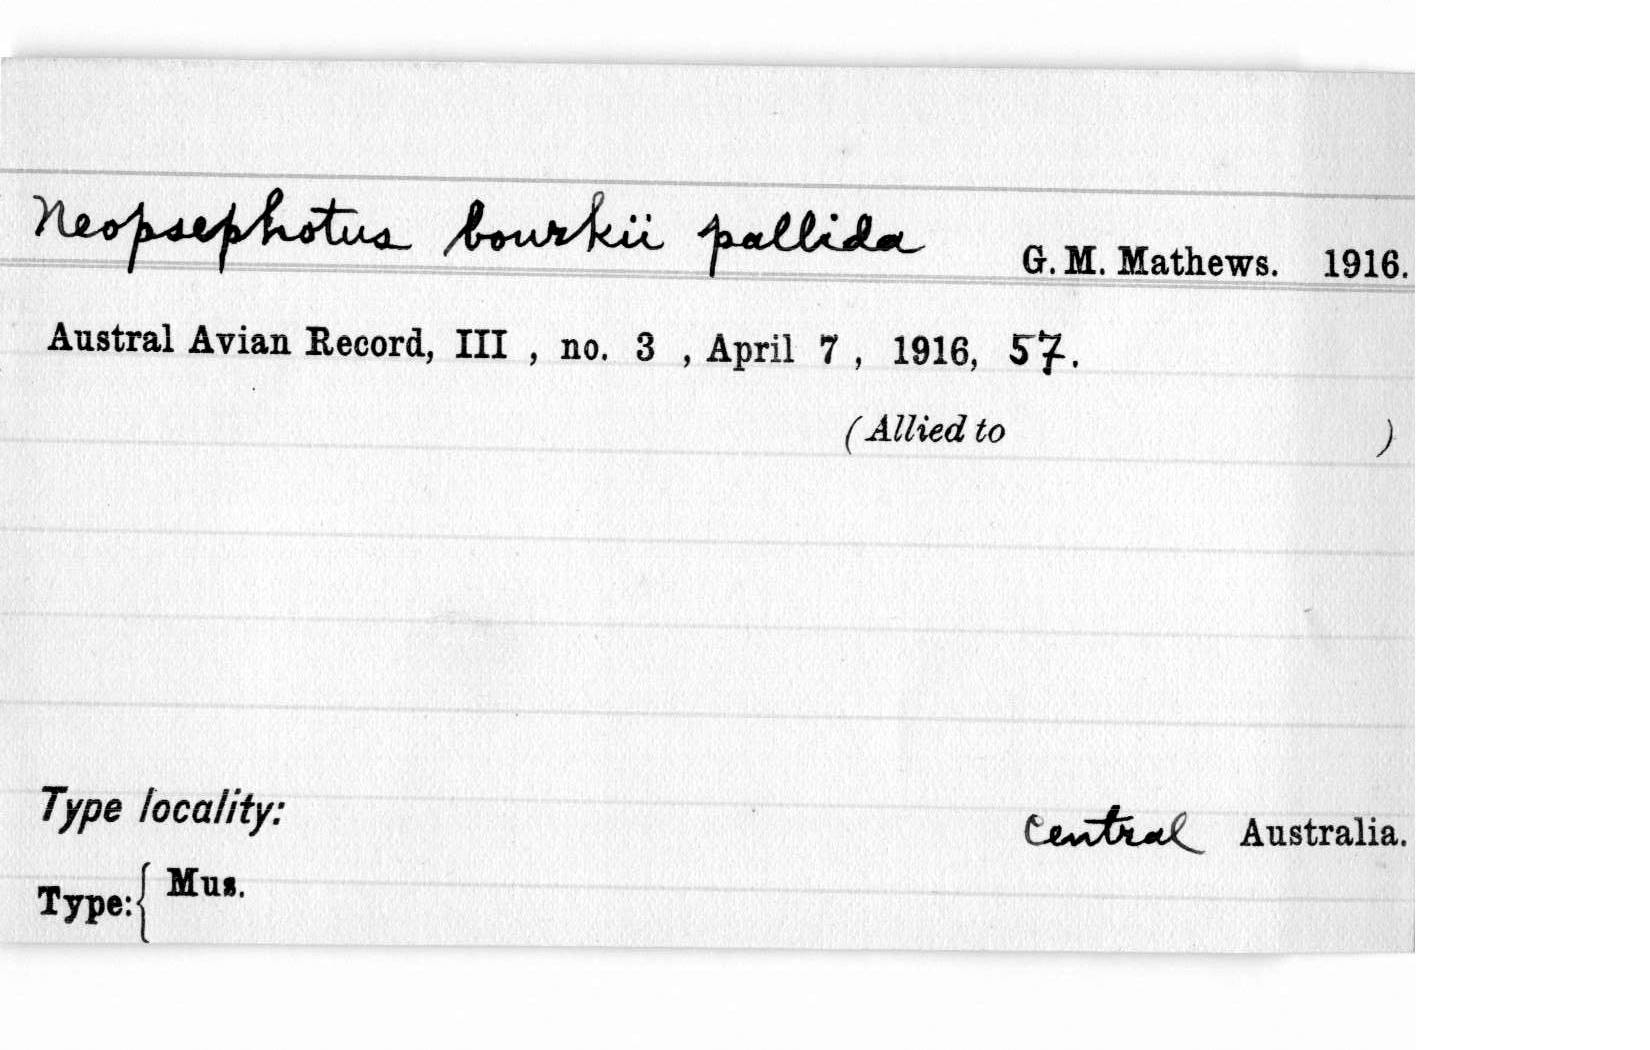 Neopsephotus bourkii pallida G. M. Mathews. 1916.
Austral Avian Record, III , no. 3 , April 7 , 1916, 57.
(Allied to )
Type locality: Central Australia.
Type: { Mus.